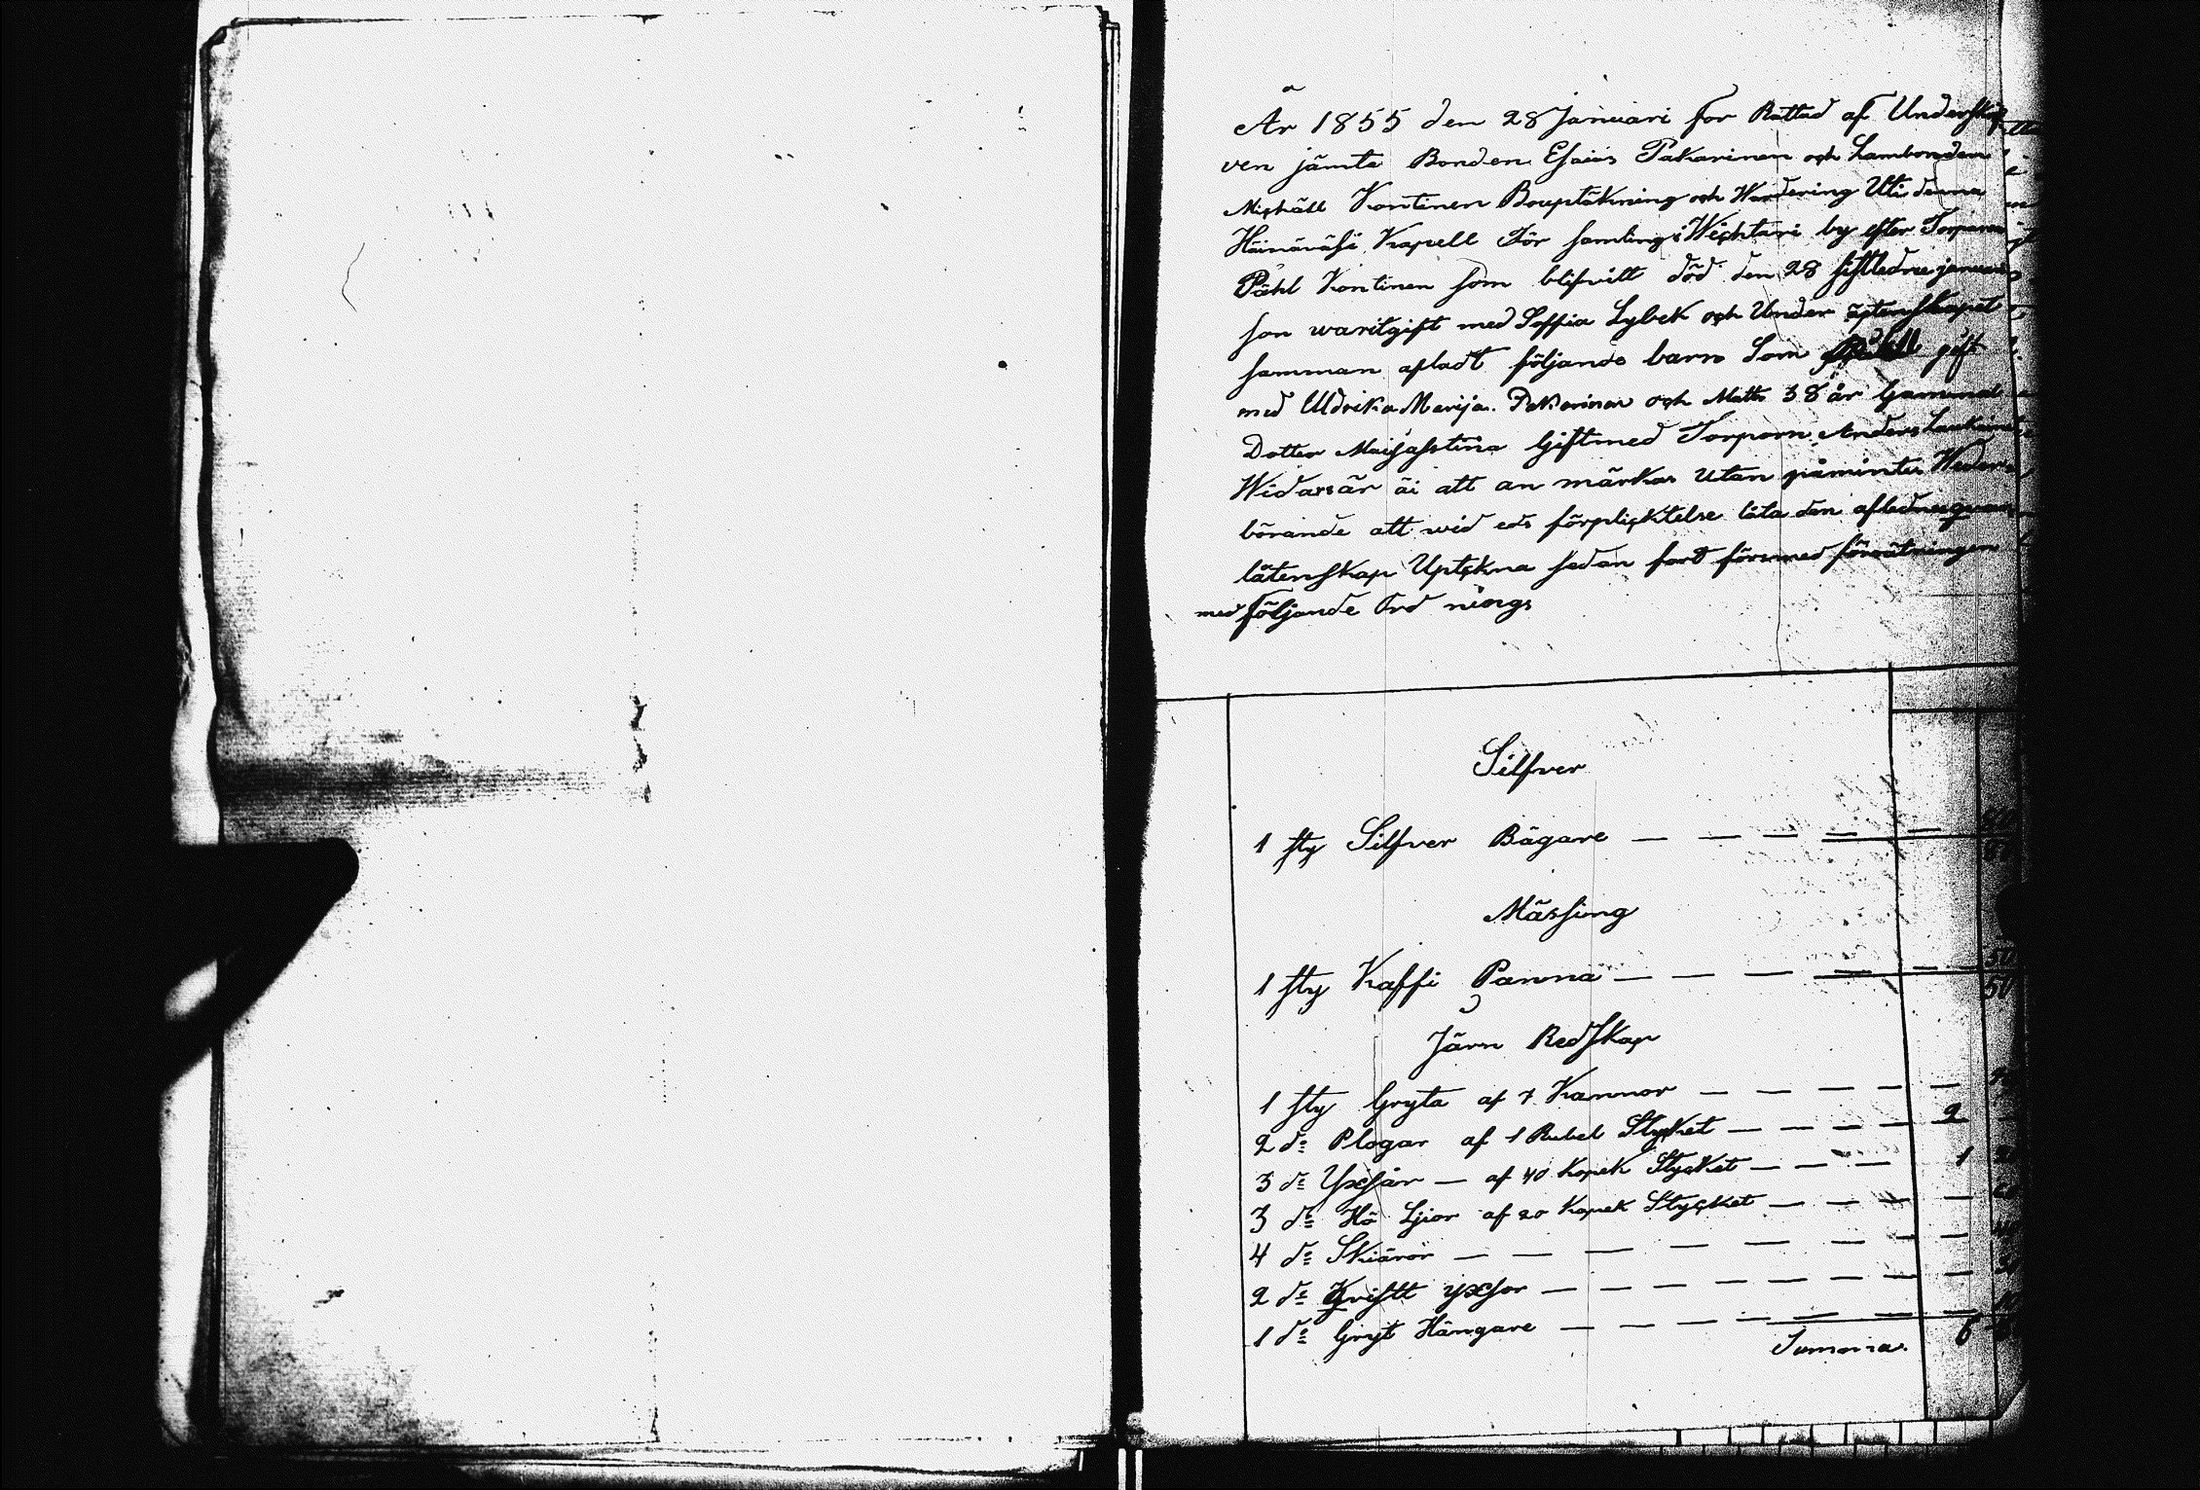 År 1855 den 28 Januari för Rättad af Underskrif
ven jämte Bonden Esaias Pakarinen och Lambonden
Mickäll Kontinen Bouptäkning och Wärdering Uti denna
Häinäväsi Kapell För samling i Wichtari by efter Torparen
Påhl Kontinen som blifvitt död den 28 sistledne januari
son waritgift med Soffia Lybek och Under äptenskapet
samman afladt följande barn Som gift
med Uldrika Marija Pakarinen och Matts 38 år Gammal
Dotter Maijastina Giftmed Torparn Anders
Widare är äi att an märkas Utan påmintes Weder
börande att wid eds förplicktelse låta den aflednes qvar
låtenskap Uptekna sedan fort föres med förrätningen
med följande Ord nings
Silfver
1 sty Silfver Bägare — — — —
Mässing
1 sty Kaffi Panna — — — — 50
50
Järn Redskap
1 sty Gryta af 7 Kannor — — — —
2 do Plogar af 1 Rubel Stycket — — — — 2
3 do Yxsår — af 40 kopek Stycket — — — 1
3 do Hö Ljior af 20 kopek Stycket — — —
4 do Skiäror — — — —
2 do Kvistt yxsor — — — —
1 do Gryt Hängare — — — —
Summa 6